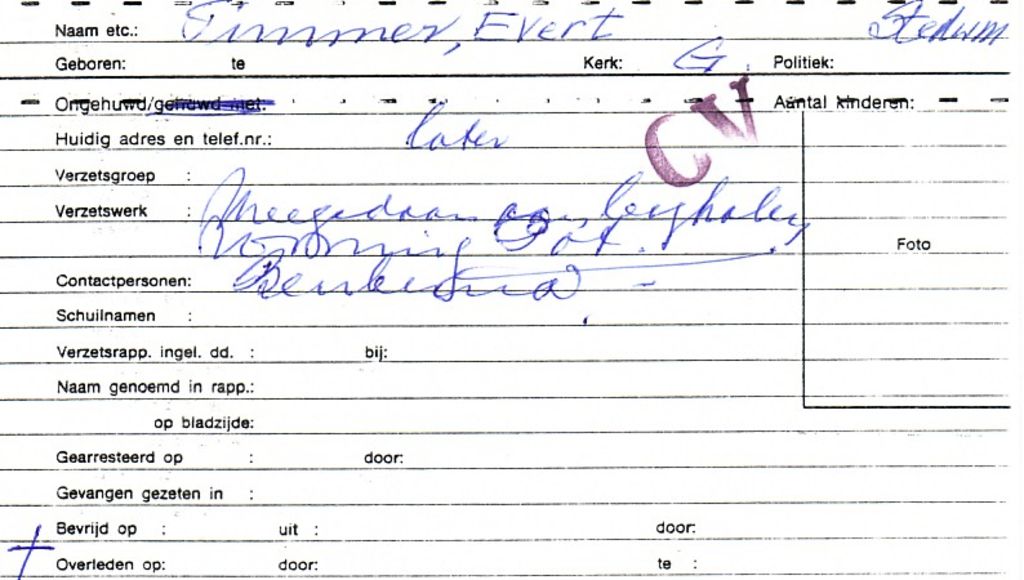 Naam etc.: Timmer, Evert Stedum
Geboren: te Kerk: G. Politiek:
Ongehuwd/gehuwd met: Aantal kinderen:
Huidig adres en telef.nr.: later
CV
Verzetsgroep :
Verzetswerk : Meegedaan aan
Foto
Contactpersonen:
Schuilnamen :
Verzetsrapp. ingel. dd. : bij:
Naam genoemd in rapp.:
op bladzijde:
Gearresteerd op : door:
Gevangen gezeten in :
Bevrijd op : uit : door:
† Overleden op: door: te :